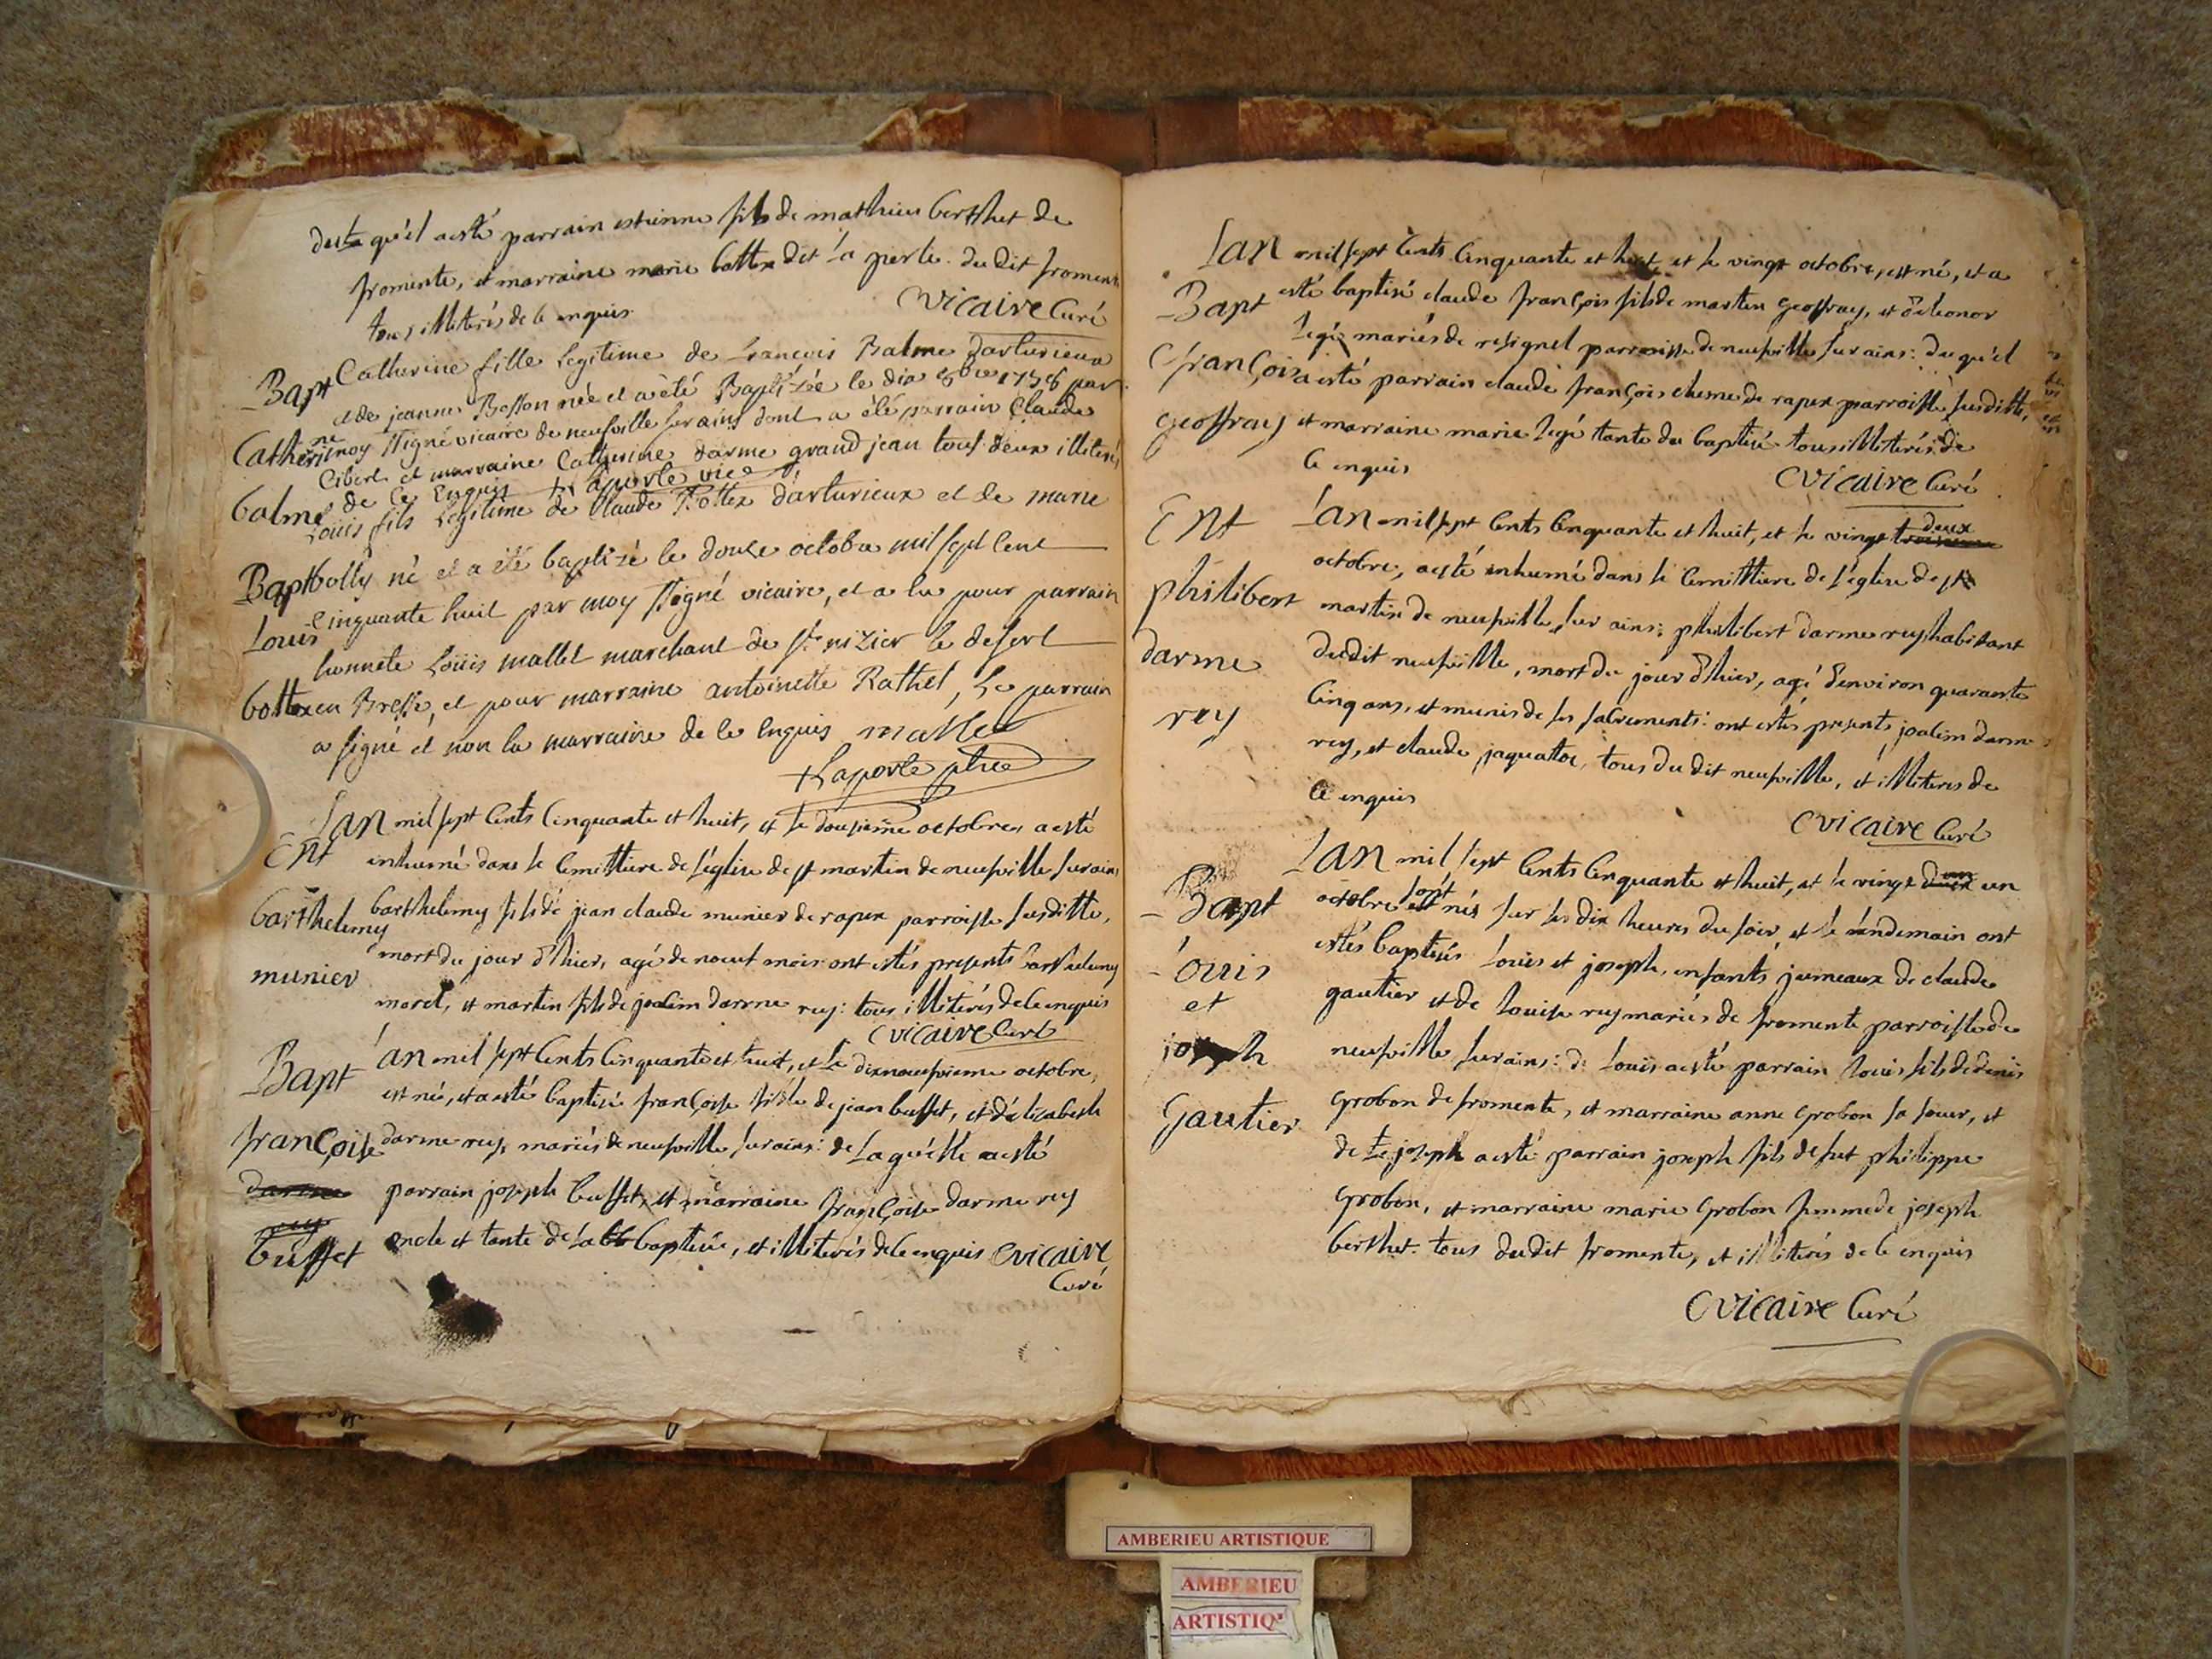 qu'il a esté parrain estienne fils de mathieu berthet de
fromente, et marraine marie bottex dit la perle du dit froment
tous illiterés de ce enquis
Vicaire Curé
Bapt
Catherine
balme
Catherine fille legitime de francois Balme d'arturieux
et de jeanne Besson née et a été Baptizée le dix 8bre 1758 par
moy ssigné vicaire de neufville sur ains dont a été parrain Claude
Cibert et marraine Catherine darme grand jean tous deux illiterés
de ce Enquis Laporte vice
Bapt
Louis
bottex
Louis fils Legitime de Claude Bottex d'arturieux et de marie
bolly né et a été baptizé le douze octobre mil sept cent
cinquante huit par moy ssigné vicaire, et a eu pour parrain
honnete Loüis mallet marchant de st nizier le desert
en Bresse, et pour marraine antoinette Rathet, Le parrain
a signé et non la marraine de ce enquis mallet
Laporte ptre
Ent
barthelemy
munier
Lan mil sept cents cinquante et huit, et le dousieme octobre, a esté
inhumé dans le cemittiere de l'église de st martin de neufville sur ains
barthelemy fils de jean claude munier de rapex parroisse susditte,
mort du jour d'hier, agé de noeuf mois ont estés presents barthelemy
morel, et martin fils de joalim darme rey: tous illiterés de ce enquis
Cvicaire Curé
Bapt
françoise
darme
rey
buffet
Lan mil sept cents cinquante et huit, et le dixnoeufvieme octobre,
est né, et a esté baptisé françoise fille de jean buffet, et d'élizabeth
darme rey, mariés de neufville sur ains: de laquelle a esté
parrain joseph buffet, et marraine françoise darme rey
oncle et tante de la baptisée, et illiterés de ce enquis Cvicaire
Curé
Bapt
françois
geoffray
Lan mil sept cents cinquante et huit, et le vingt octobre, est né, et a
esté baptisé claude françois fils de martin geoffray, et d'eleonor
legé mariés de resignel parroisse de neufville sur ains: du quel
a esté parrain claude françois chesme de rapex parroisse susditte,
et marraine marie legé tante du baptisé tous illiterés de
ce enquis
Cvicaire Curé
Ent
philibert
darme
rey
Lan mil sept cents cinquante et huit, et le vingt deux
octobre, a esté inhumé dans le cemittiere de l'église de st
martin de neufville sur ains: philibert darme rey habitant
dudit neufville, mort du jour d'hier, agé d'environ quarante
cinq ans, et munis de ses sacrements: ont estés presents joalim darme
rey, et claude jaquattot, tous du dit neufville, et illiterés de
ce enquis
Cvicaire Curé
Bapt
Louis
et
joseph
Gautier
Lan mil sept cents cinquante et huit, et le vingt un
octobre sont nés sur les dix heures du soir, et le lendemain ont
estés baptisés Louis et joseph, enfants jumeaux de claude
gautier et de Louise rey mariés de fromente parroisse de
neufville sur ains: de Louis a esté parrain Louis fils de denis
grobon de fromente, et marraine anne grobon sa soeur, et
de joseph a esté parrain joseph fils de fut philippe
grobon, et marraine marie grobon femme de joseph
berthet. tous du dit fromente, et illiterés de ce enquis
Cvicaire Curé
AMBERIEU ARTISTIQUE
AMBERIEU
ARTISTIQ